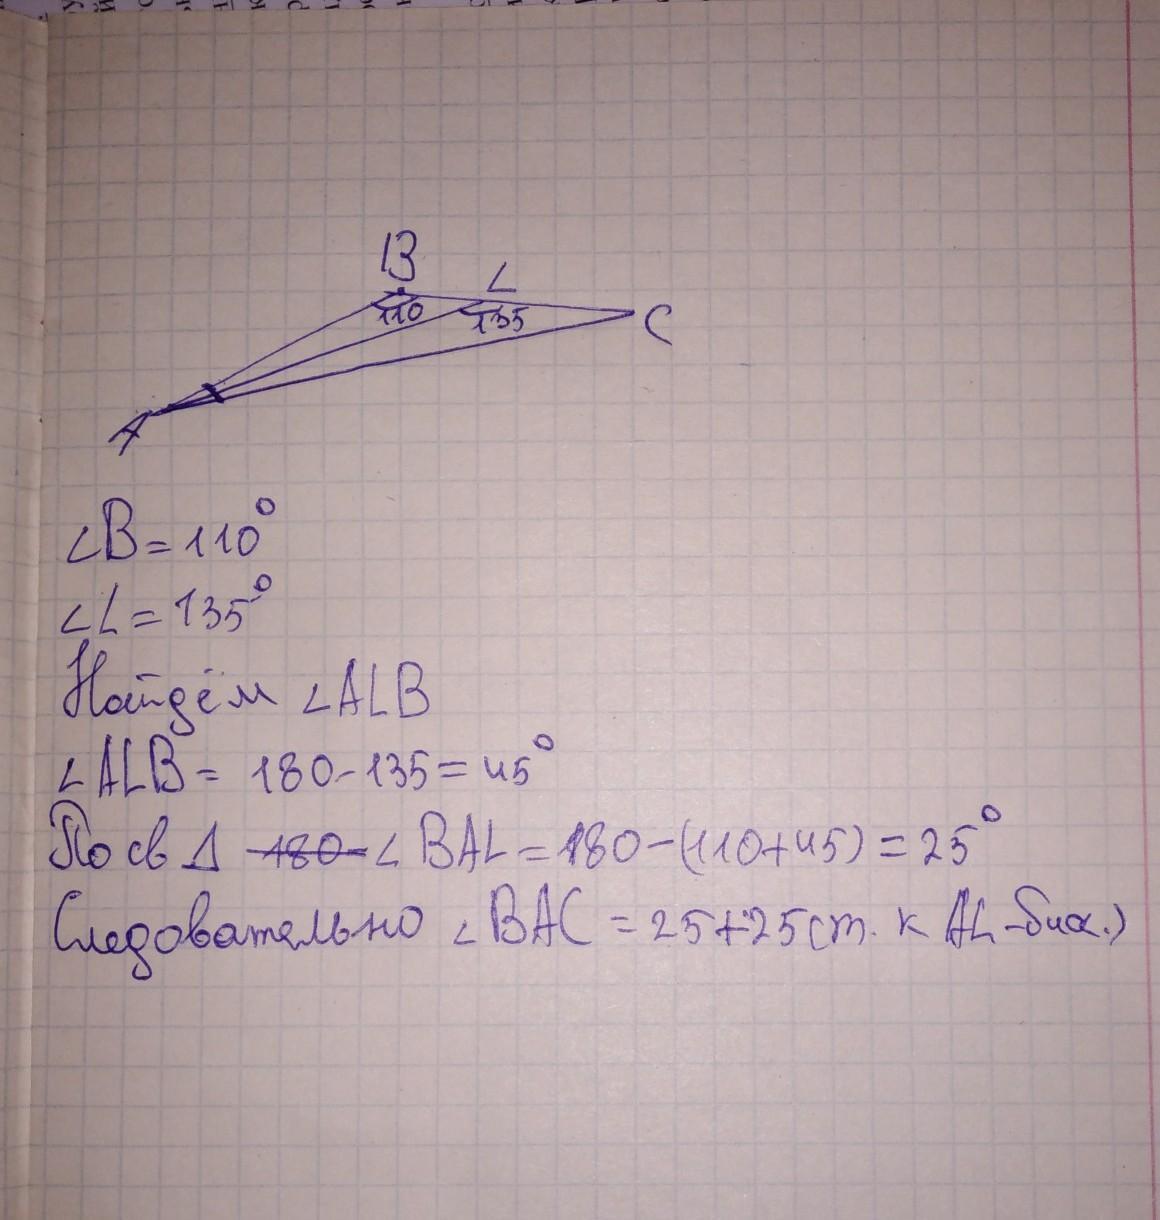 B
L
110
135
C
A
∠B=110°
∠L=135°
Найдём ∠ALB
∠ALB= 180-135=45°
По св Δ ∠BAL=180-(110+45)=25°
Следовательно ∠BAC=25+25(т.к AL-бис.)